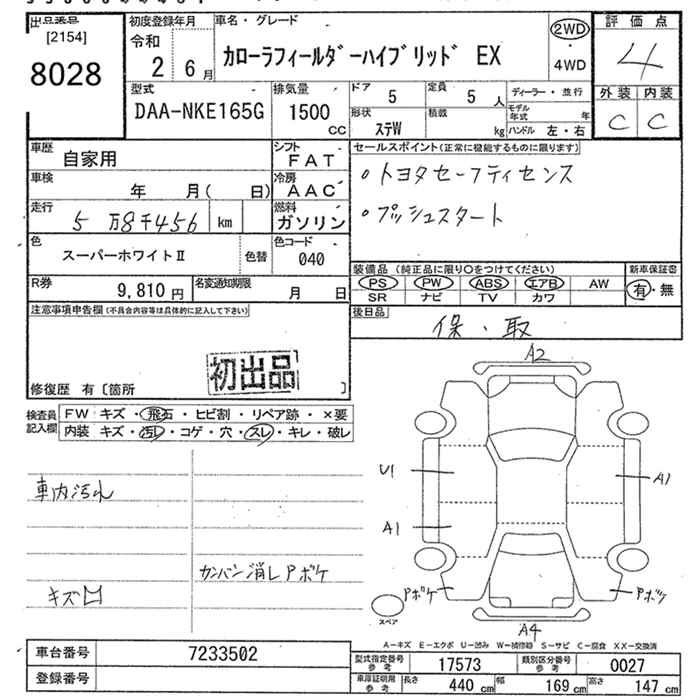 出品番号
[2154]
8028
初度登録年月
令和
2 6月
車名・グレード
カローラフィールダーハイブリッド EX
2WD
・
4WD
評価点
4
外装 内装
C C
型式
DAA-NKE165G
排気量
1500
CC
ドア 5
定員 5 人
形状 ステW
積載 kg
ディーラー・並行
モデル年式 年
ハンドル 左・右
車歴 自家用
シフト FAT
車検 年 月( 日)
冷房 AAC
走行 5万8千456 km
燃料 ガソリン
色 スーパーホワイトⅡ
色替
色コード 040
R券 9,810円
名変通知期限 月 日
セールスポイント(正常に機能するものに限ります)
・トヨタセーフティセンス
・プッシュスタート
装備品(純正品に限り○をつけてください)
新車保証書
PS PW ABS エアB AW
SR ナビ TV カワ
有・無
後日品
保・取
注意事項申告欄(不具合内容等は具体的に記入して下さい)
初出品
修復歴 有〔箇所 〕
検査員記入欄
FW キズ・飛石・ヒビ割・リペア跡・×要
内装 キズ・汚レ・コゲ・穴・スレ・キレ・破レ
車内汚れ
カンバン消しPボケ
キズ凹
A2
U1
A1
A1
Pボケ
Pボケ
スペア
A4
A－キズ E－エクボ U－凹み W－補修跡 S－サビ C－腐食 XX－交換済
車台番号 7233502
登録番号
型式指定番号 参考 17573
類別区分番号 参考 0027
車庫証明用 参考
長さ 440 cm
幅 169 cm
高さ 147 cm